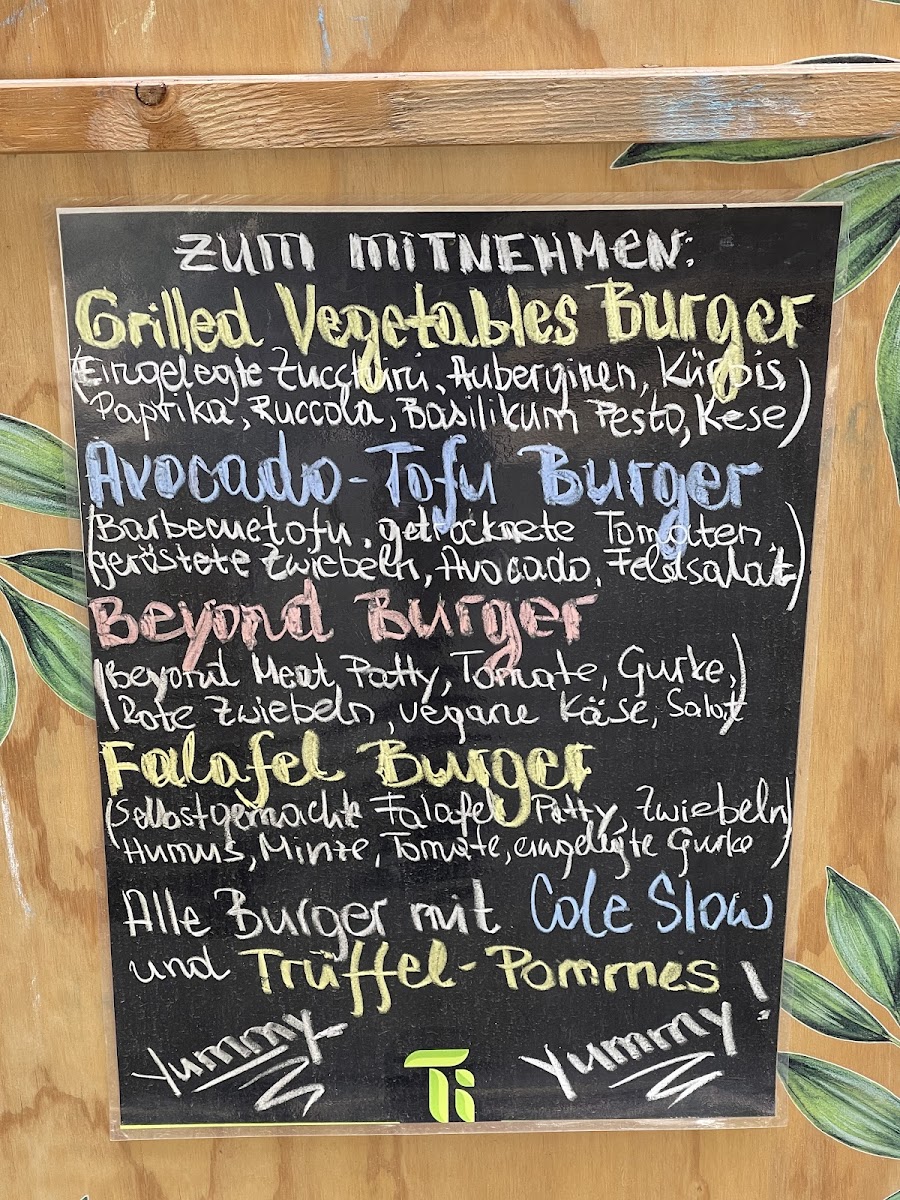 ZUM MITNEHMEN:
Grilled Vegetables Burger
(Eingelegte Zucchini, Auberginen, Kürbis,
Paprika, Ruccola, Basilikum Pesto, Kese)
Avocado-Tofu Burger
(Barbecuetofu, getrocknete Tomaten,
geröstete Zwiebeln, Avocado, Feldsalat)
Beyond Burger
(Beyond Meat Patty, Tomate, Gurke,
Rote Zwiebeln, vegane Käse, Salat)
Falafel Burger
(Selbstgemachte Falafel Patty, Zwiebeln
Humus, Minze, Tomate, eingelegte Gurke)
Alle Burger mit Cole Slow
und Trüffel-Pommes
Yummy Yummy!
Ti